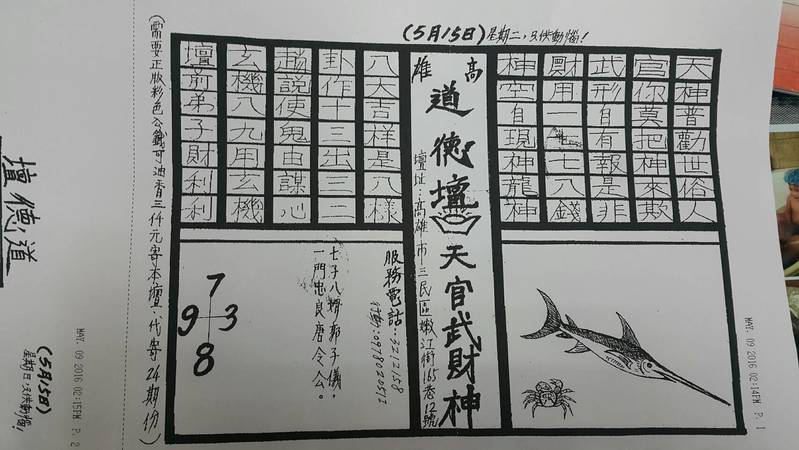 (5月15日)星期日,只供動惱!
天神普勸世俗人
官你莫把神來欺
武形自有報是非
財用一七八錢
神空自現神龍神
高雄
道德壇 天官武財神
壇址:高雄市三民區嫩江街165巷12號
八大吉样是八樣
卦作十三出三二
趙說使鬼由謀心
玄機八九用玄機
壇前弟子財利利
服務電話:3212158
七子八婿郭子儀,
一門忠良唐令公。
7
9 3
8
(需要正版彩色公籤可油香三仟元寄本壇.代寄24期份)
MAY. 09 2016 02:14PM P. 1
MAY. 09 2016 02:15PM P. 2
道德壇
(5月15日)
星期日只供動惱!